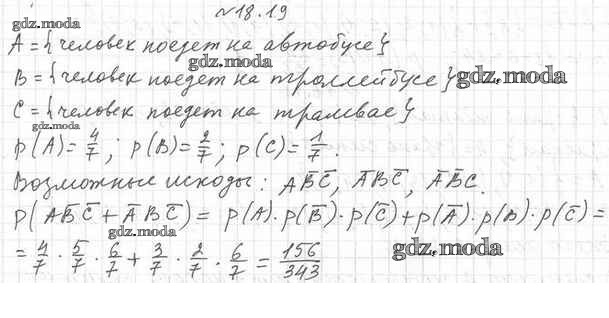 №18.19
gdz.moda
A = {человек поедет на автобусе}
B = {человек поедет на троллейбусе} gdz.moda
C = {человек поедет на трамвае}
gdz.moda
p(A)=4/7; p(B)=2/7; p(C)=1/7.
Возможные исходы: AB̅C̅, A̅BC̅, A̅B̅C.
p(AB̅C̅ + A̅BC̅) = p(A)·p(B̅)·p(C̅)+p(A̅)·p(B)·p(C̅)=
gdz.moda
= 4/7 · 5/7 · 6/7 + 3/7 · 2/7 · 6/7 = 156/343
gdz.moda